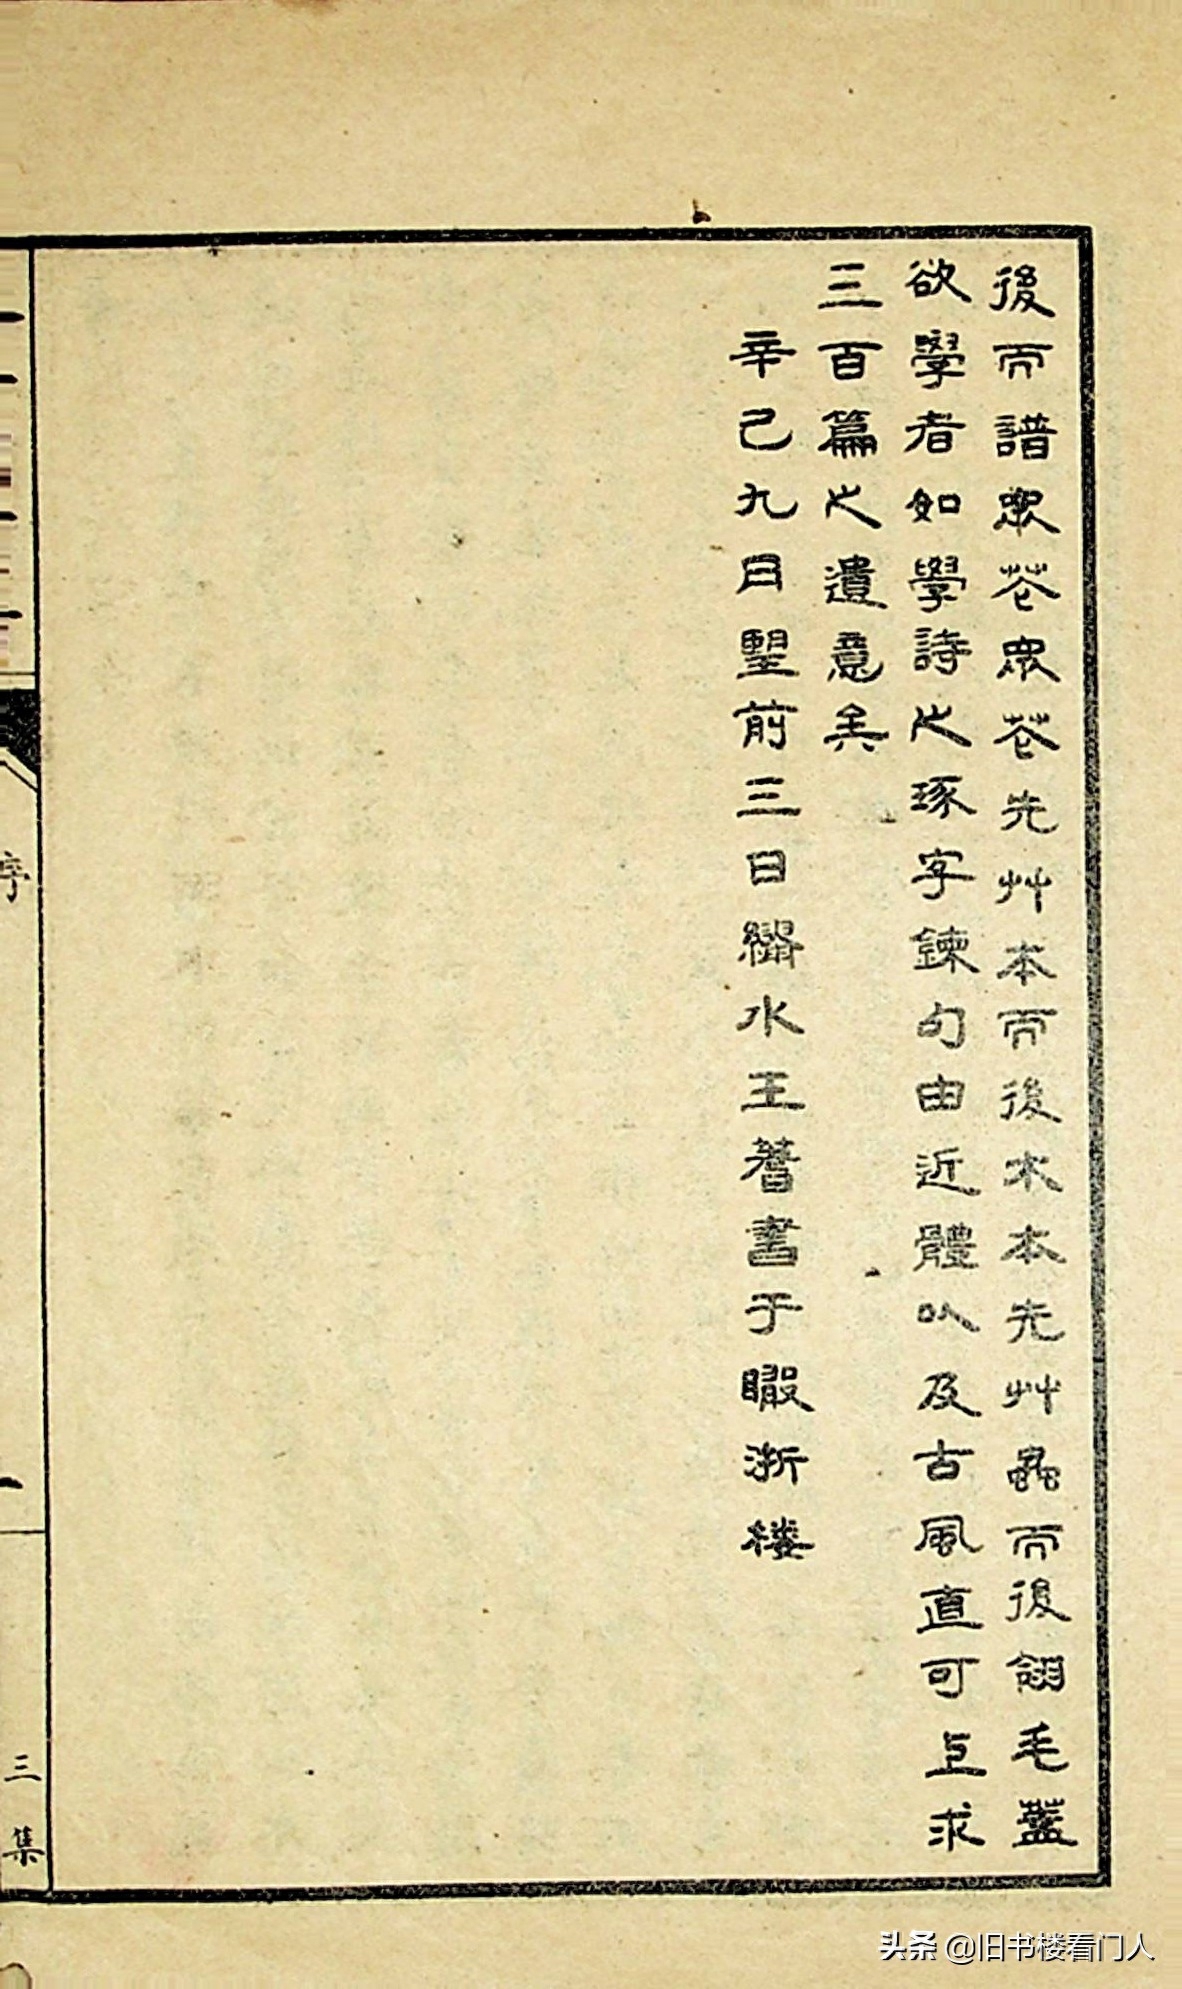 後而譜眾花眾花先艸本而後木本先艸蟲而後翎毛蓋
欲學者如學詩之琢字鍊句由近體以及古風直可上求
三百篇之遺意矣
辛巳九月望前三日繡水王蓍書于瞰浙樓
序
三集
头条 @旧书楼看门人